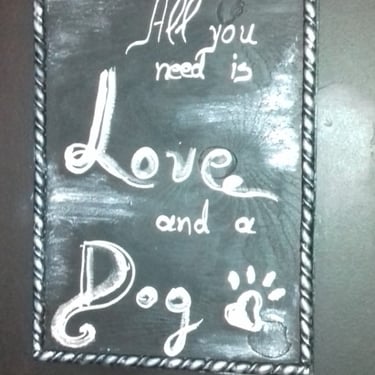 All you
need is
Love
and a
Dog